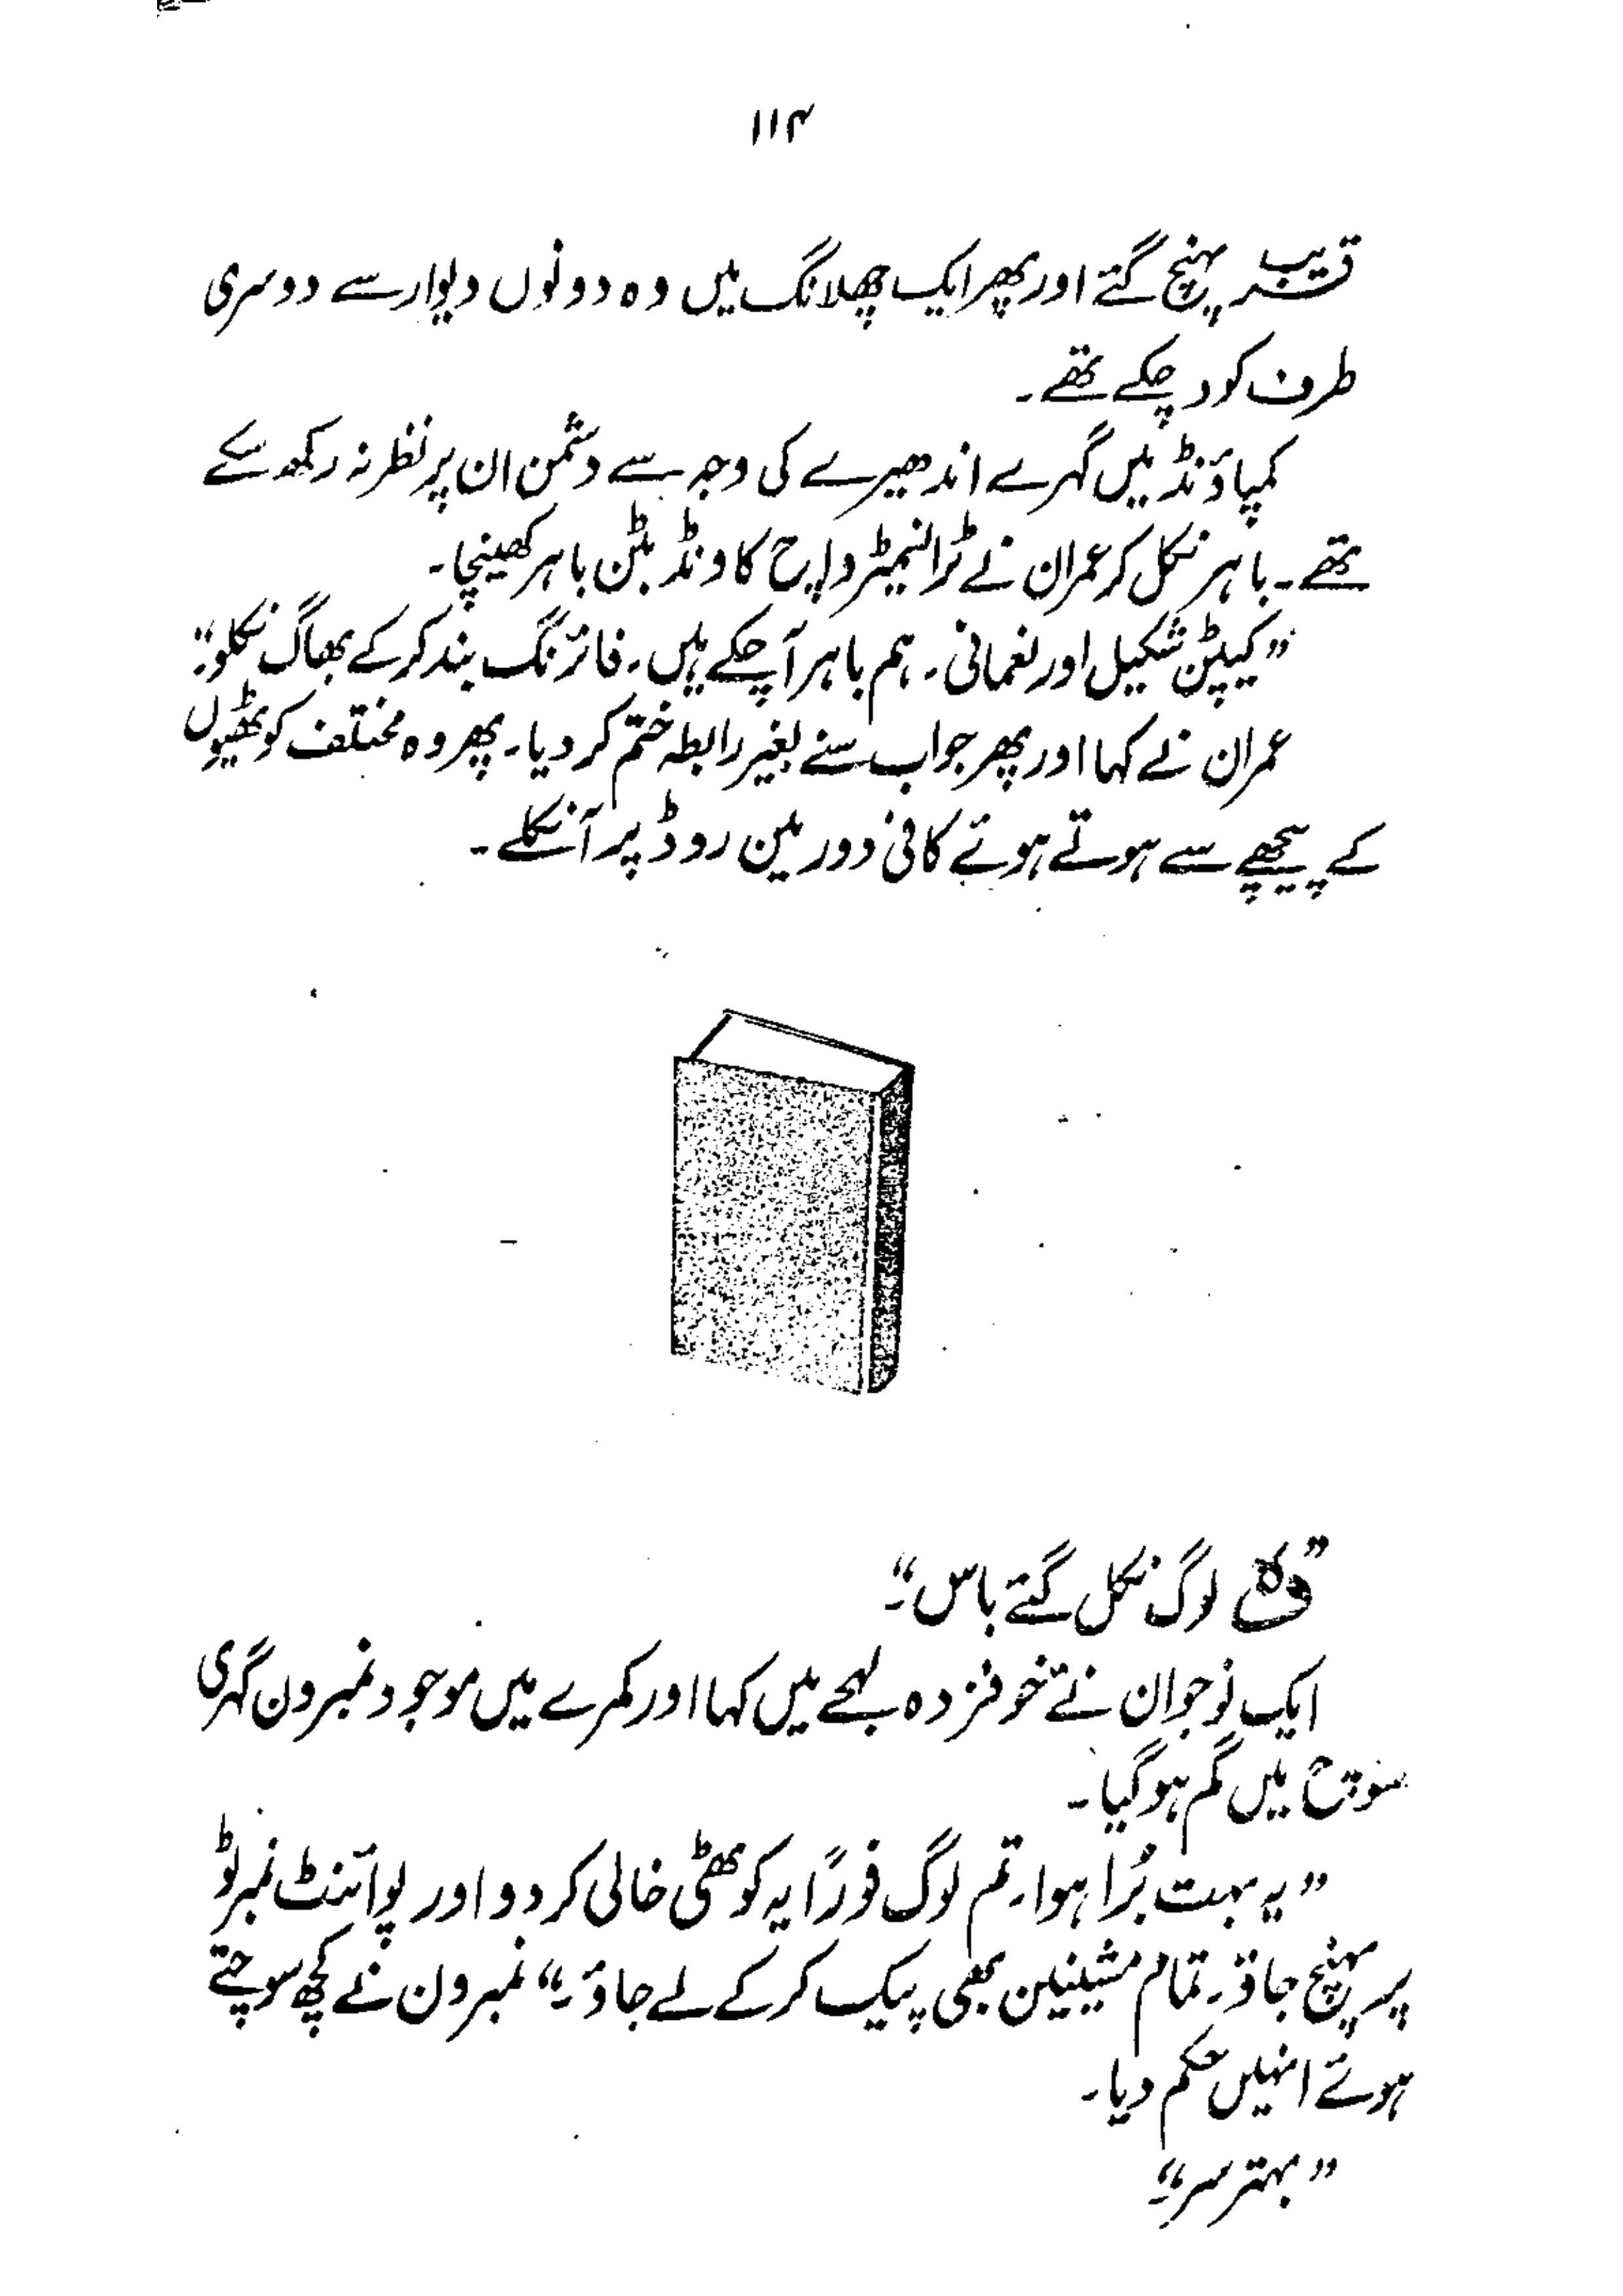 ۱۱۴
قریب پہنچ گئے اور پھر ایک چھلانگ میں وہ دونوں دیوار سے دوسری
طرف کود چکے تھے۔
کمپاؤنڈ میں گہرے اندھیرے کی وجہ سے دشمن ان پر نظر نہ رکھ سکے
تھے۔ باہر نکل کر عمران نے ٹرانسمیٹر واچ کا ونڈ بٹن باہر کھینچا۔
”کیپٹن شکیل اور نعمانی۔ ہم باہر آ چکے ہیں۔ فائرنگ بند کر کے بھاگ نکلو۔“
عمران نے کہا اور پھر جواب سنے بغیر رابطہ ختم کر دیا۔ پھر وہ مختلف کوٹھیوں
کے پیچھے سے ہوتے ہوئے کافی دور مین روڈ پر آ نکلے۔
”وہ لوگ نکل گئے باس“۔
ایک نوجوان نے خوفزدہ لہجے میں کہا اور کمرے میں موجود نمبرون گہری
سوچ میں گم ہو گیا۔
”یہ بہت بُرا ہوا۔ تم لوگ فوراً یہ کوٹھی خالی کر دو اور پوائنٹ نمبر ٹو
پر پہنچ جاؤ۔ تمام مشینیں بھی پیک کر کے لے جاؤ۔“ نمبرون نے کچھ سوچتے
ہوئے انہیں حکم دیا۔
”بہتر سر“۔